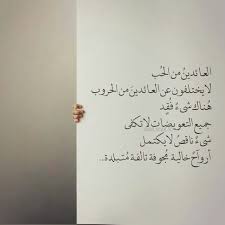 العائدينُ من الحُب
لا يختلفون عن العائدينَ من الحروب
هُناك شيءٌ فُقِد
جميع التعويضاتِ لا تكفى
شيءٌ ناقصُ لا يكتمل
أرواحٌ خالية مُجوفة تالفة مُتبلدة..